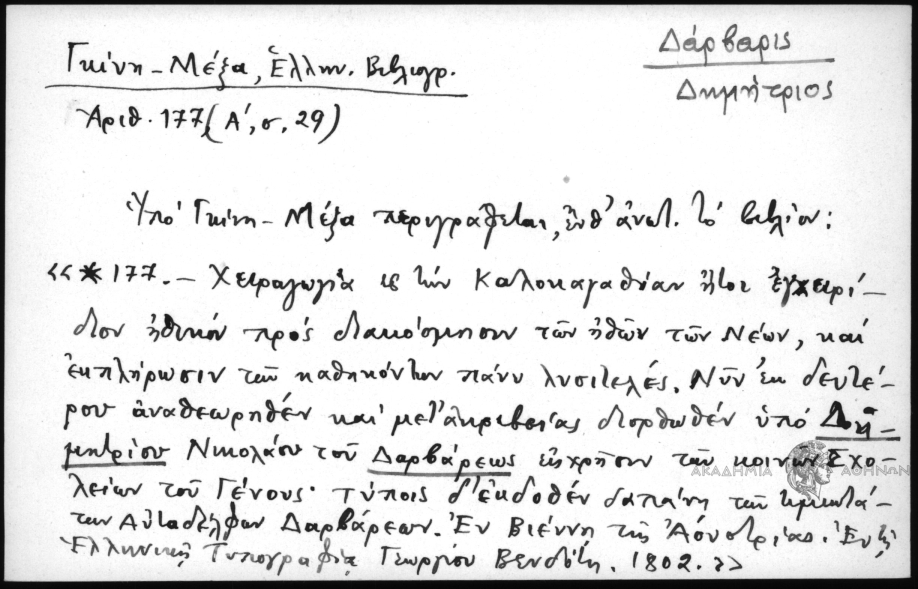 Δάρβαρις
Δημήτριος
Γκίνη - Μέξα, Ἑλλην. Βιβλιογρ.
Ἀριθ. 177, (Α', σ. 29)
Ὑπό Γκίνη - Μέξα περιγράφεται, ἐνθ' ἀνωτ. τό βιβλίον:
«* 177. - Χειραγωγία εἰς τήν Καλοκαγαθίαν ἤτοι ἐγχειρί-
διον ἠθικόν πρός διακόσμησιν τῶν ἠθῶν τῶν Νέων, καί
ἐκπλήρωσιν τῶν καθηκόντων πάνυ λυσιτελές. Νῦν ἐκ δευτέ-
ρου ἀναθεωρηθέν καί μετ' ἀκριβείας διορθωθέν ὑπό Δη-
μητρίου Νικολάου τοῦ Δαρβάρεως εἰς χρῆσιν τῶν κοινῶν Σχο-
λείων τοῦ Γένους· τύποις δ' ἐκδοθέν δαπάνῃ τῶν τιμιωτά-
των Αὐταδέλφων Δαρβάρεων. Ἐν Βιέννῃ τῆς Ἀουστρίας. Ἐν τῇ
Ἑλληνικῇ Τυπογραφίᾳ Γεωργίου Βενδότη. 1802.»
ΑΚΑΔΗΜΙΑ ΑΘΗΝΩΝ